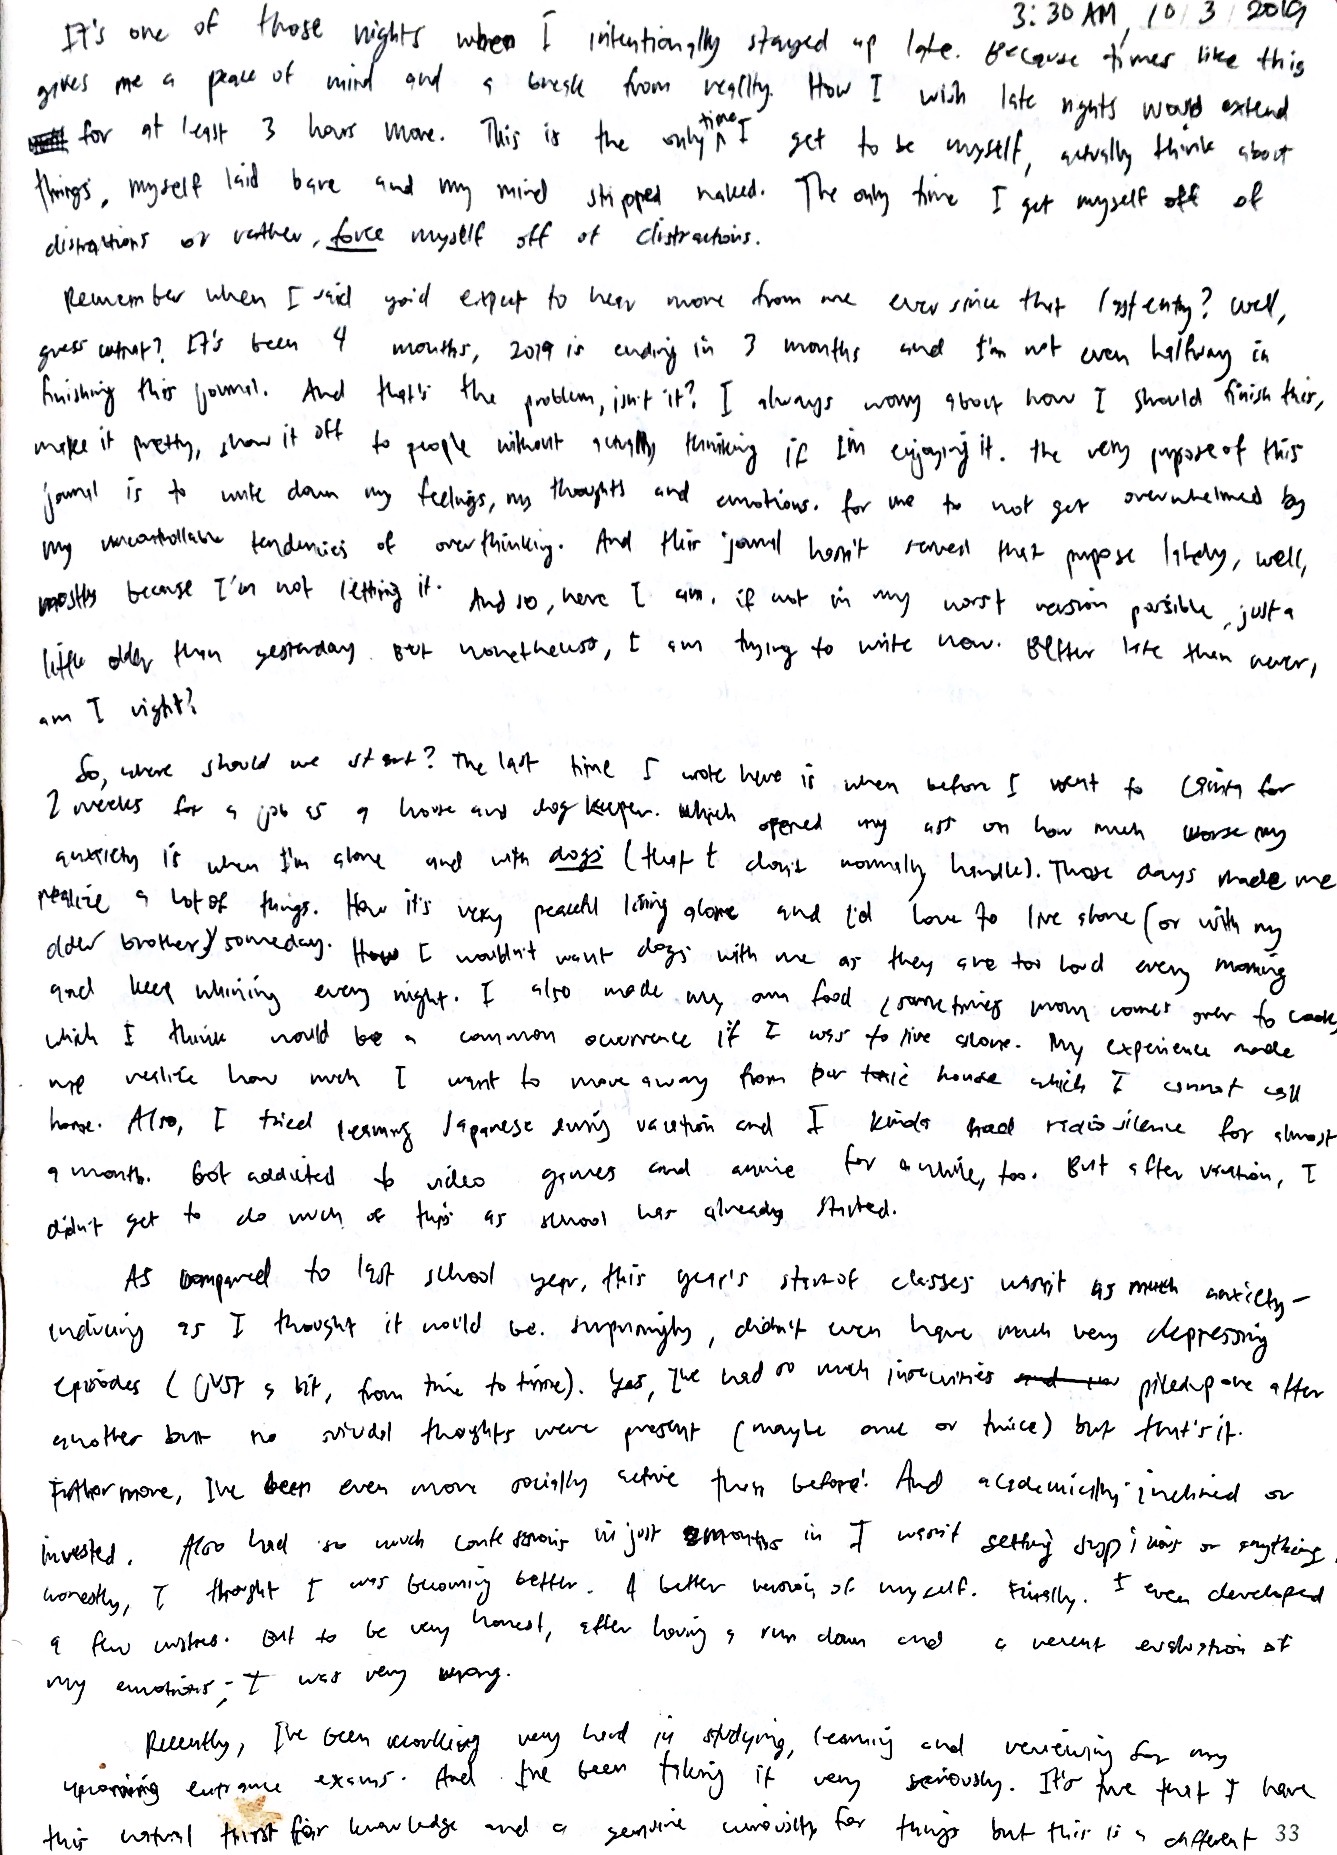 3:30 AM, 10/3/2019
It's one of those nights when I intentionally stayed up late. Because times like this
gives me a peace of mind and a break from reality. How I wish late nights would extend
for at least 3 hours more. This is the only time I get to be myself, actually think about
things, myself laid bare and my mind stripped naked. The only time I get myself off of
distractions or rather, force myself off of distractions.
Remember when I said you'd expect to hear more from me ever since that last entry? Well,
guess what? It's been 4 months, 2019 is ending in 3 months and I'm not even halfway in
finishing this journal. And that's the problem, isn't it? I always worry about how I should finish this,
make it pretty, show it off to people without actually thinking if I'm enjoying it. The very purpose of this
journal is to write down my feelings, my thoughts and emotions. For me to not get overwhelmed by
my uncontrollable tendencies of overthinking. And this journal hasn't served that purpose lately, well,
mostly because I'm not letting it. And so, here I am, if not in my worst version possible, just a
little older than yesterday. But nonetheless, I am trying to write now. Better late than never,
am I right?
So, where should we start? The last time I wrote here is when before I went to for
2 weeks for a job as a house and dog keeper. Which opened my ass on how much worse my
anxiety is when I'm alone and with dogs (that I don't normally handle). Those days made me
realize a lot of things. How it's very peaceful living alone and I'd love to live alone (or with my
older brother) someday. How I wouldn't want dogs with me as they are too loud every morning
and keep whining every night. I also made my own food (sometimes mom comes over to cook)
which I think would be a common occurrence if I was to live alone. My experience made
me realize how much I want to move away from house which I cannot call
home. Also, I tried learning Japanese during vacation and I kinda had radio silence for almost
a month. Got addicted to video games and anime for a while, too. But after vacation, I
didn't get to do much of this as school has already started.
As compared to last school year, this year's start of classes wasn't as much anxiety-
inducing as I thought it would be. Surprisingly, didn't even have much very depressing
episodes (just a bit, from time to time). Yes, I've had so much insecurities piled up one after
another but no suicidal thoughts were present (maybe once or twice) but that's it.
Futhermore, I've been even more socially active than before. And academically inclined or
invested. Also had so much confessions in just months in I wasn't or anything.
Honestly, I thought I was becoming better. A better version of myself. Finally. I even developed
a few But to be very honest, after having a run down and a recent evaluation of
my emotions; I was very wrong.
Recently, I've been working very hard in studying, learning and reviewing for my
upcoming entrance exams. And I've been taking it very seriously. It's true that I have
this natural thirst for knowledge and a genuine curiosity for things but this is a different
33